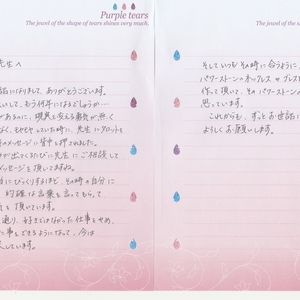 Purple tears
The jewel of the shape of tears shines very much.
先生へ
話になりまして、ありがとうございます。
いして、もう何年になるでしょうか…
があるのに、現実を変える勇気が無く
なく、モヤモヤしていた時に、先生にタロットと
のメッセージに背中を押されました。
が出てくるたびに先生にご相談して
メッセージを頂いてますね。
にびっくりするほど、その時の自分に
的確な言葉を言ってもらって
を頂いています。
通り、好きではなかった仕事をやめ、
仕事をできるようになって、今は
しています。
The jewel of the shape of tears
そしていつもその時に合うように、
パワーストーンのネックレスやブレス
作って頂いて、そのパワーストーン
思っています。
これからも、ずっとお世話に
よろしくお願いします。